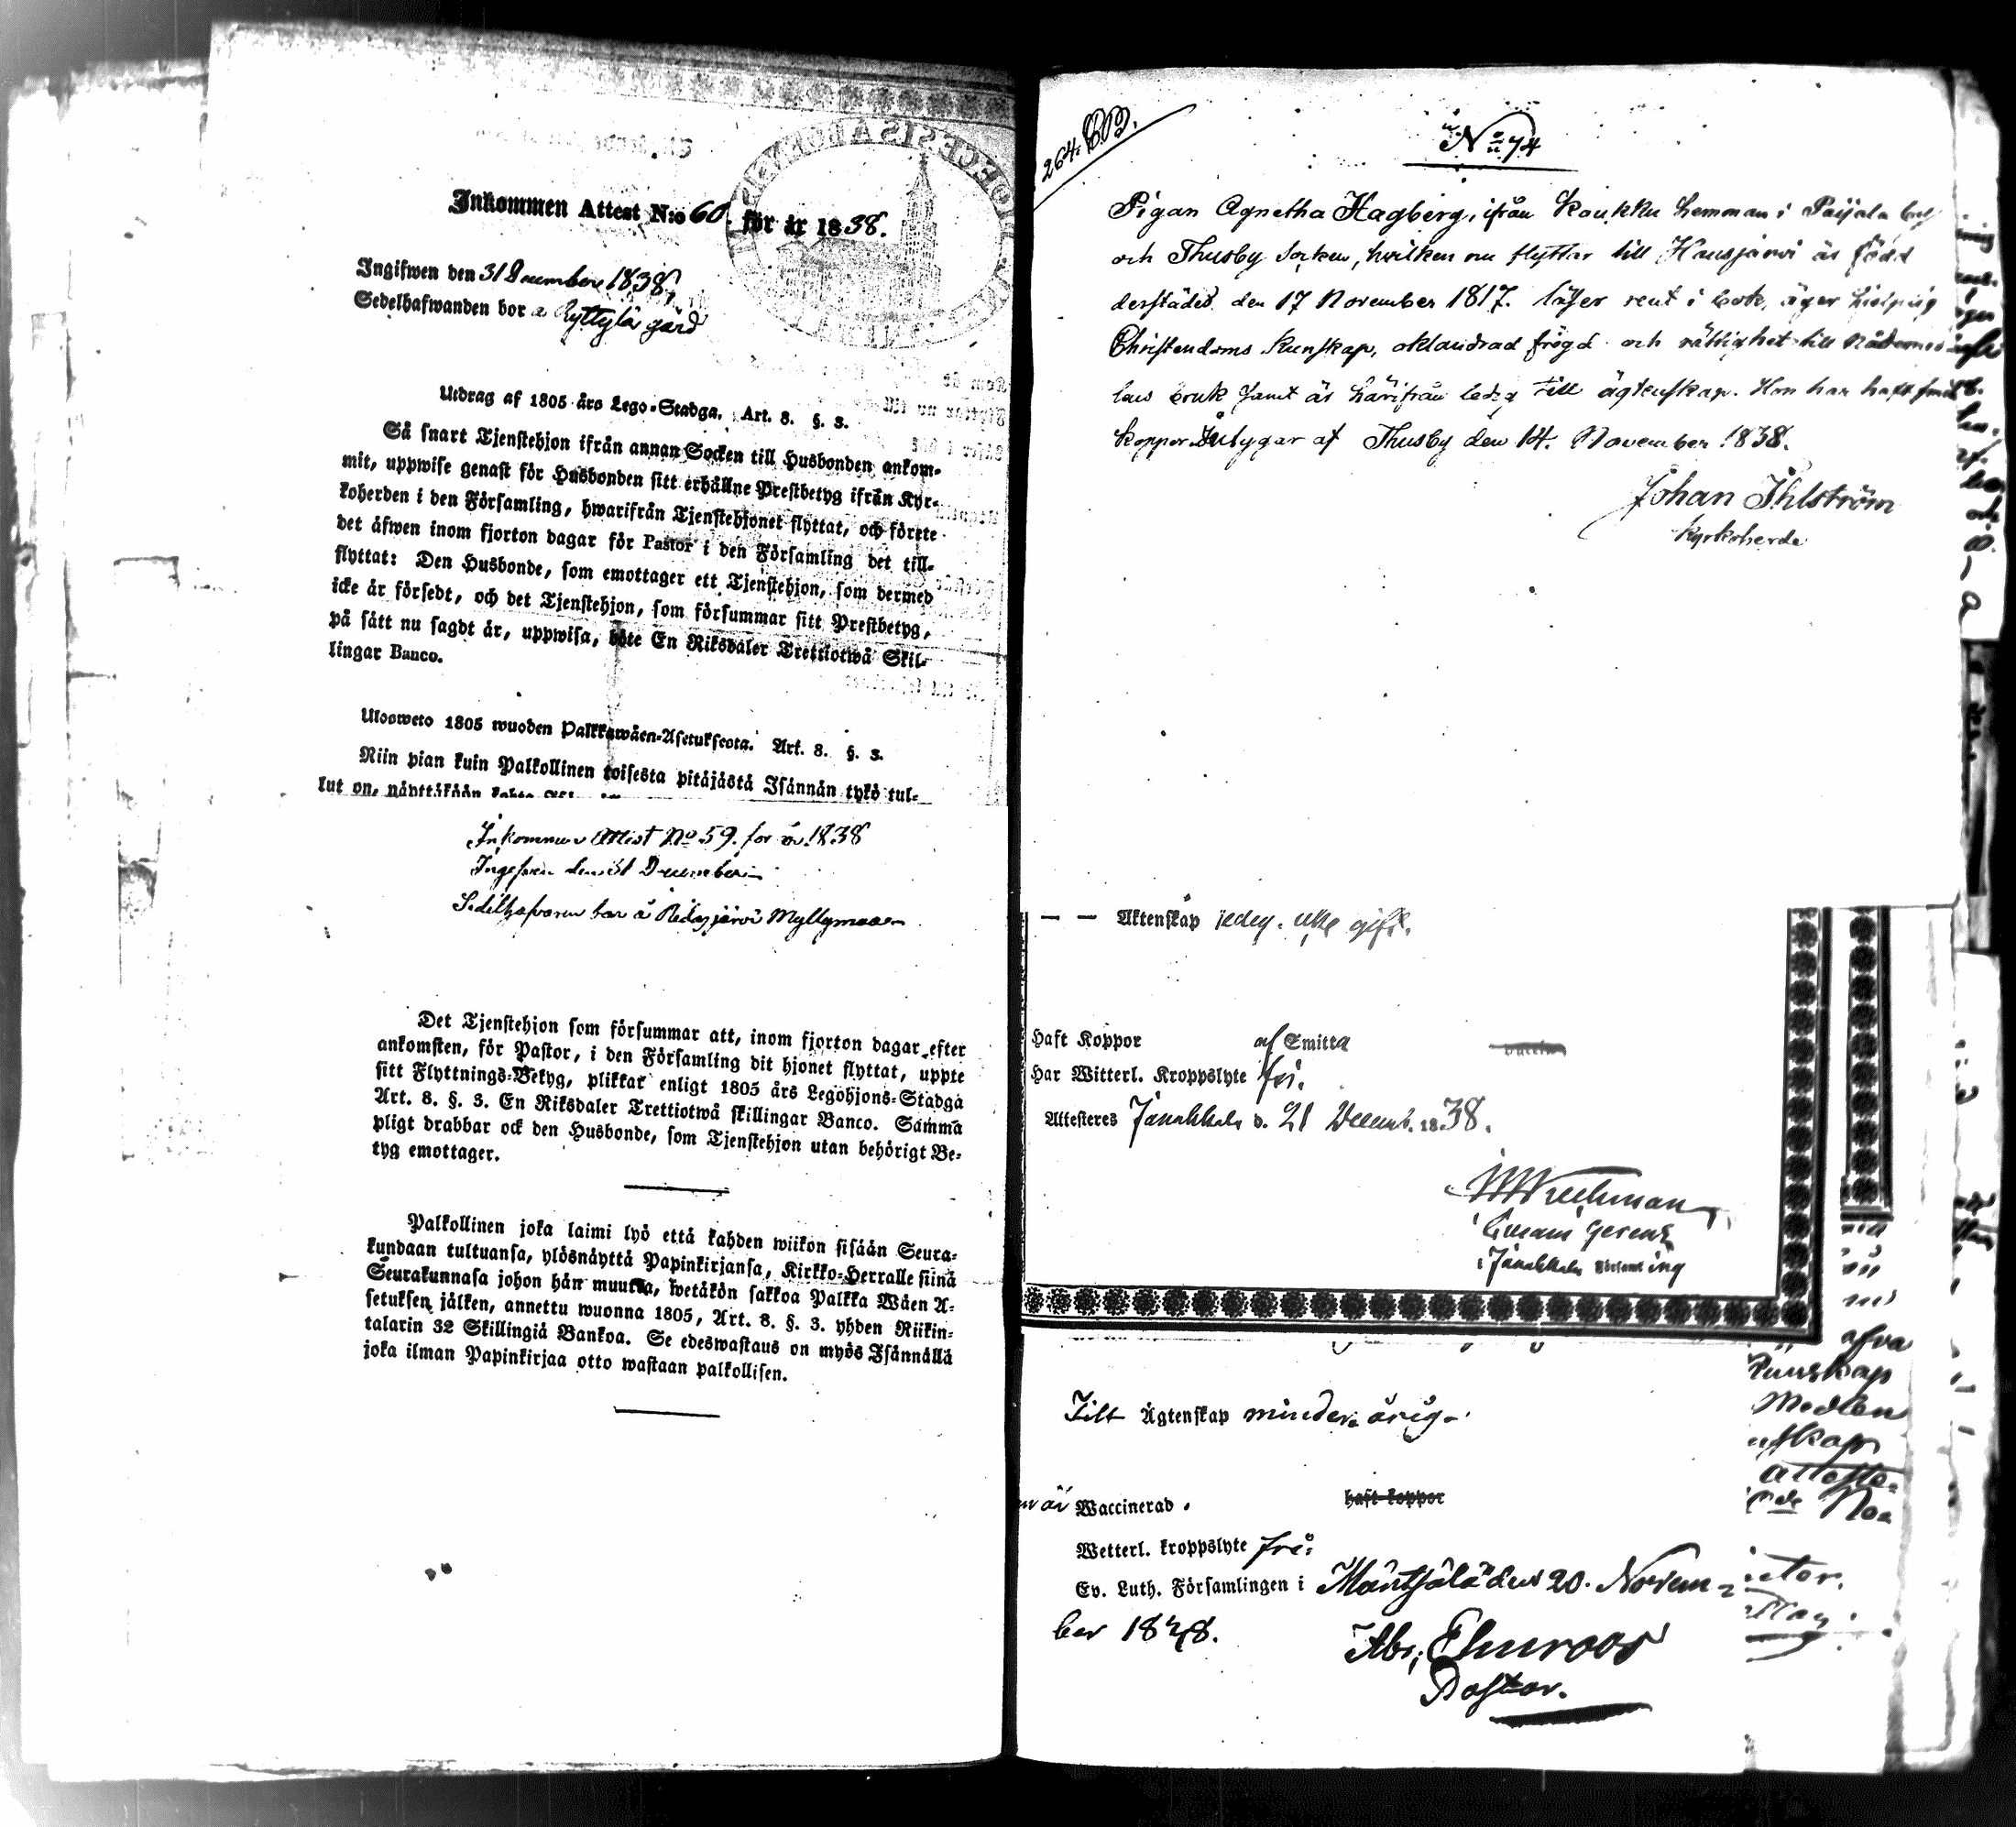 Inkommen Attest N:o 60. för år 1838.
Ingifwen den 31 December 1838,
Sedelhafwanden bor å Ryttylä gård
Utdrag af 1805 års Lego-Stadga. Art. 8. §. 3.
Så snart Tjenstehjon ifrån annan Socken till Husbonden ankom-
mit, uppwise genast för Husbonden sitt erhållne Prestbetyg ifrån Kyr-
koherden i den Församling, hwarifrån Tjenstehjonet flyttat, och förete
det äfwen inom fjorton dagar för Pastor i den Församling det till-
flyttat: Den Husbonde, som emottager ett Tjenstehjon, som dermed
icke är försedt, och det Tjenstehjon, som försummar sitt Prestbetyg,
på sätt nu sagdt är, uppwisa, böte En Riksdaler Trettiotwå Skil-
lingar Banco.
Ulosweto 1805 wuoden Palkkawäen-Asetuksesta. Art. 8. §. 3.
Niin pian kuin Palkollinen toisesta pitäjästä Isännän tykö tul-
lut on, näyttäkään
Inkommen Attest No 59. for år 1838
Ingifven den 31 December
Sedelhafvaren bor å Ridasjärvi Myllymaa
Det Tjenstehjon som försummar att, inom fjorton dagar efter
ankomsten, för Pastor, i den Församling dit hjonet flyttat, uppte
sitt Flyttnings-Betyg, pliktar enligt 1805 års Legohjons-Stadga
Art. 8. §. 3. En Riksdaler Trettiotwå skillingar Banco. Samma
pligt drabbar ock den Husbonde, som Tjenstehjon utan behörigt Be-
tyg emottager.
Palkollinen joka laimi lyö että kahden wiikon sisään Seura-
kundaan tultuansa, ylösnäyttä Papinkirjansa, Kirkko-Herralle siinä
Seurakunnasa johon hän muutta, wetäkön sakkoa Palkka Wäen A-
setuksen jälken, annettu wuonna 1805, Art. 8. §. 3. yhden Riikin-
talarin 32 Skillingiä Bankoa. Se edeswastaus on myös Isännällä
joka ilman Papinkirjaa otto wastaan palkollisen.
264.
No 74
Pigan Agnetha Hagberg, ifrån Koukku hemman i Paijala by
och Thusby Socken, hvilken nu flyttar till Hausjärvi är född
derstädes den 17 November 1817. läser rent i bok, äger hielpig
Christendoms kunskap, oklandrad frögd och rättighet till Nådemed
lens bruk samt är härifrån ledig till ägtenskap. Hon har haft smit
koppor. Intygar af Thusby den 14. November 1838.
Johan Ihlström
kyrkoherde
Aktenskap ledig. icke gift.
Haft Koppor af Smitta
Har Witterl. Kroppslyte fri.
Attesteres Janakkala d. 21 Decemb. 1838.
Janakkala Församling
Till Ägtenskap minderårig
är Waccinerad. haft koppor
Wetterl. kroppslyte fri
Ev. Luth. Församlingen i Mäntsälä den 20. Novem-
ber 1838.
Abr. Elmroos
Pastor.
afva
kunskap
Medlen